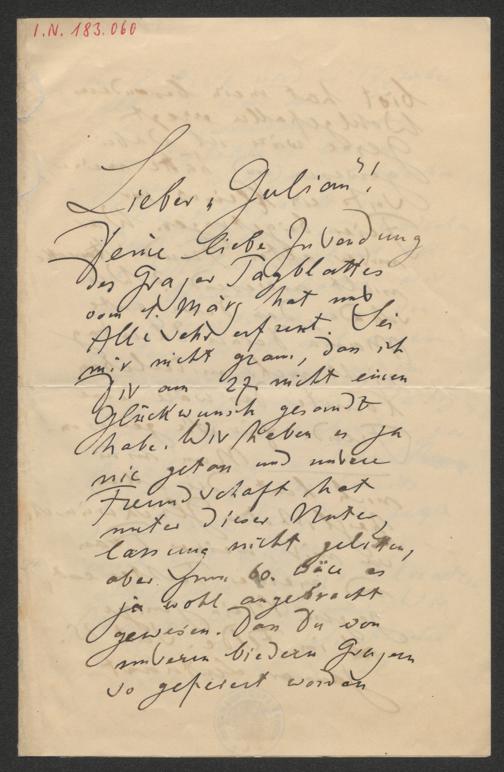 I.N. 183.060
Lieber „Julian“!
Deine liebe Zusendung
des Grazer Tagblattes
vom 1. März hat uns
Alle sehr erfreut. Sei
mir nicht gram, dass ich
Dir am 27 nicht einen
Glückwunsch gesandt
habe. Wir haben es ja
nie getan und unsere
Freundschaft hat
unter dieser Unter
lassung nicht gelitten,
aber zum 60. wäre es
ja wohl angebracht
gewesen. Dass Du von
unseren biedern Grazern
so gefeiert worden